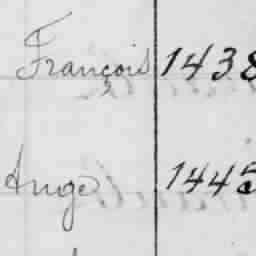 François 1438
Ange 1445